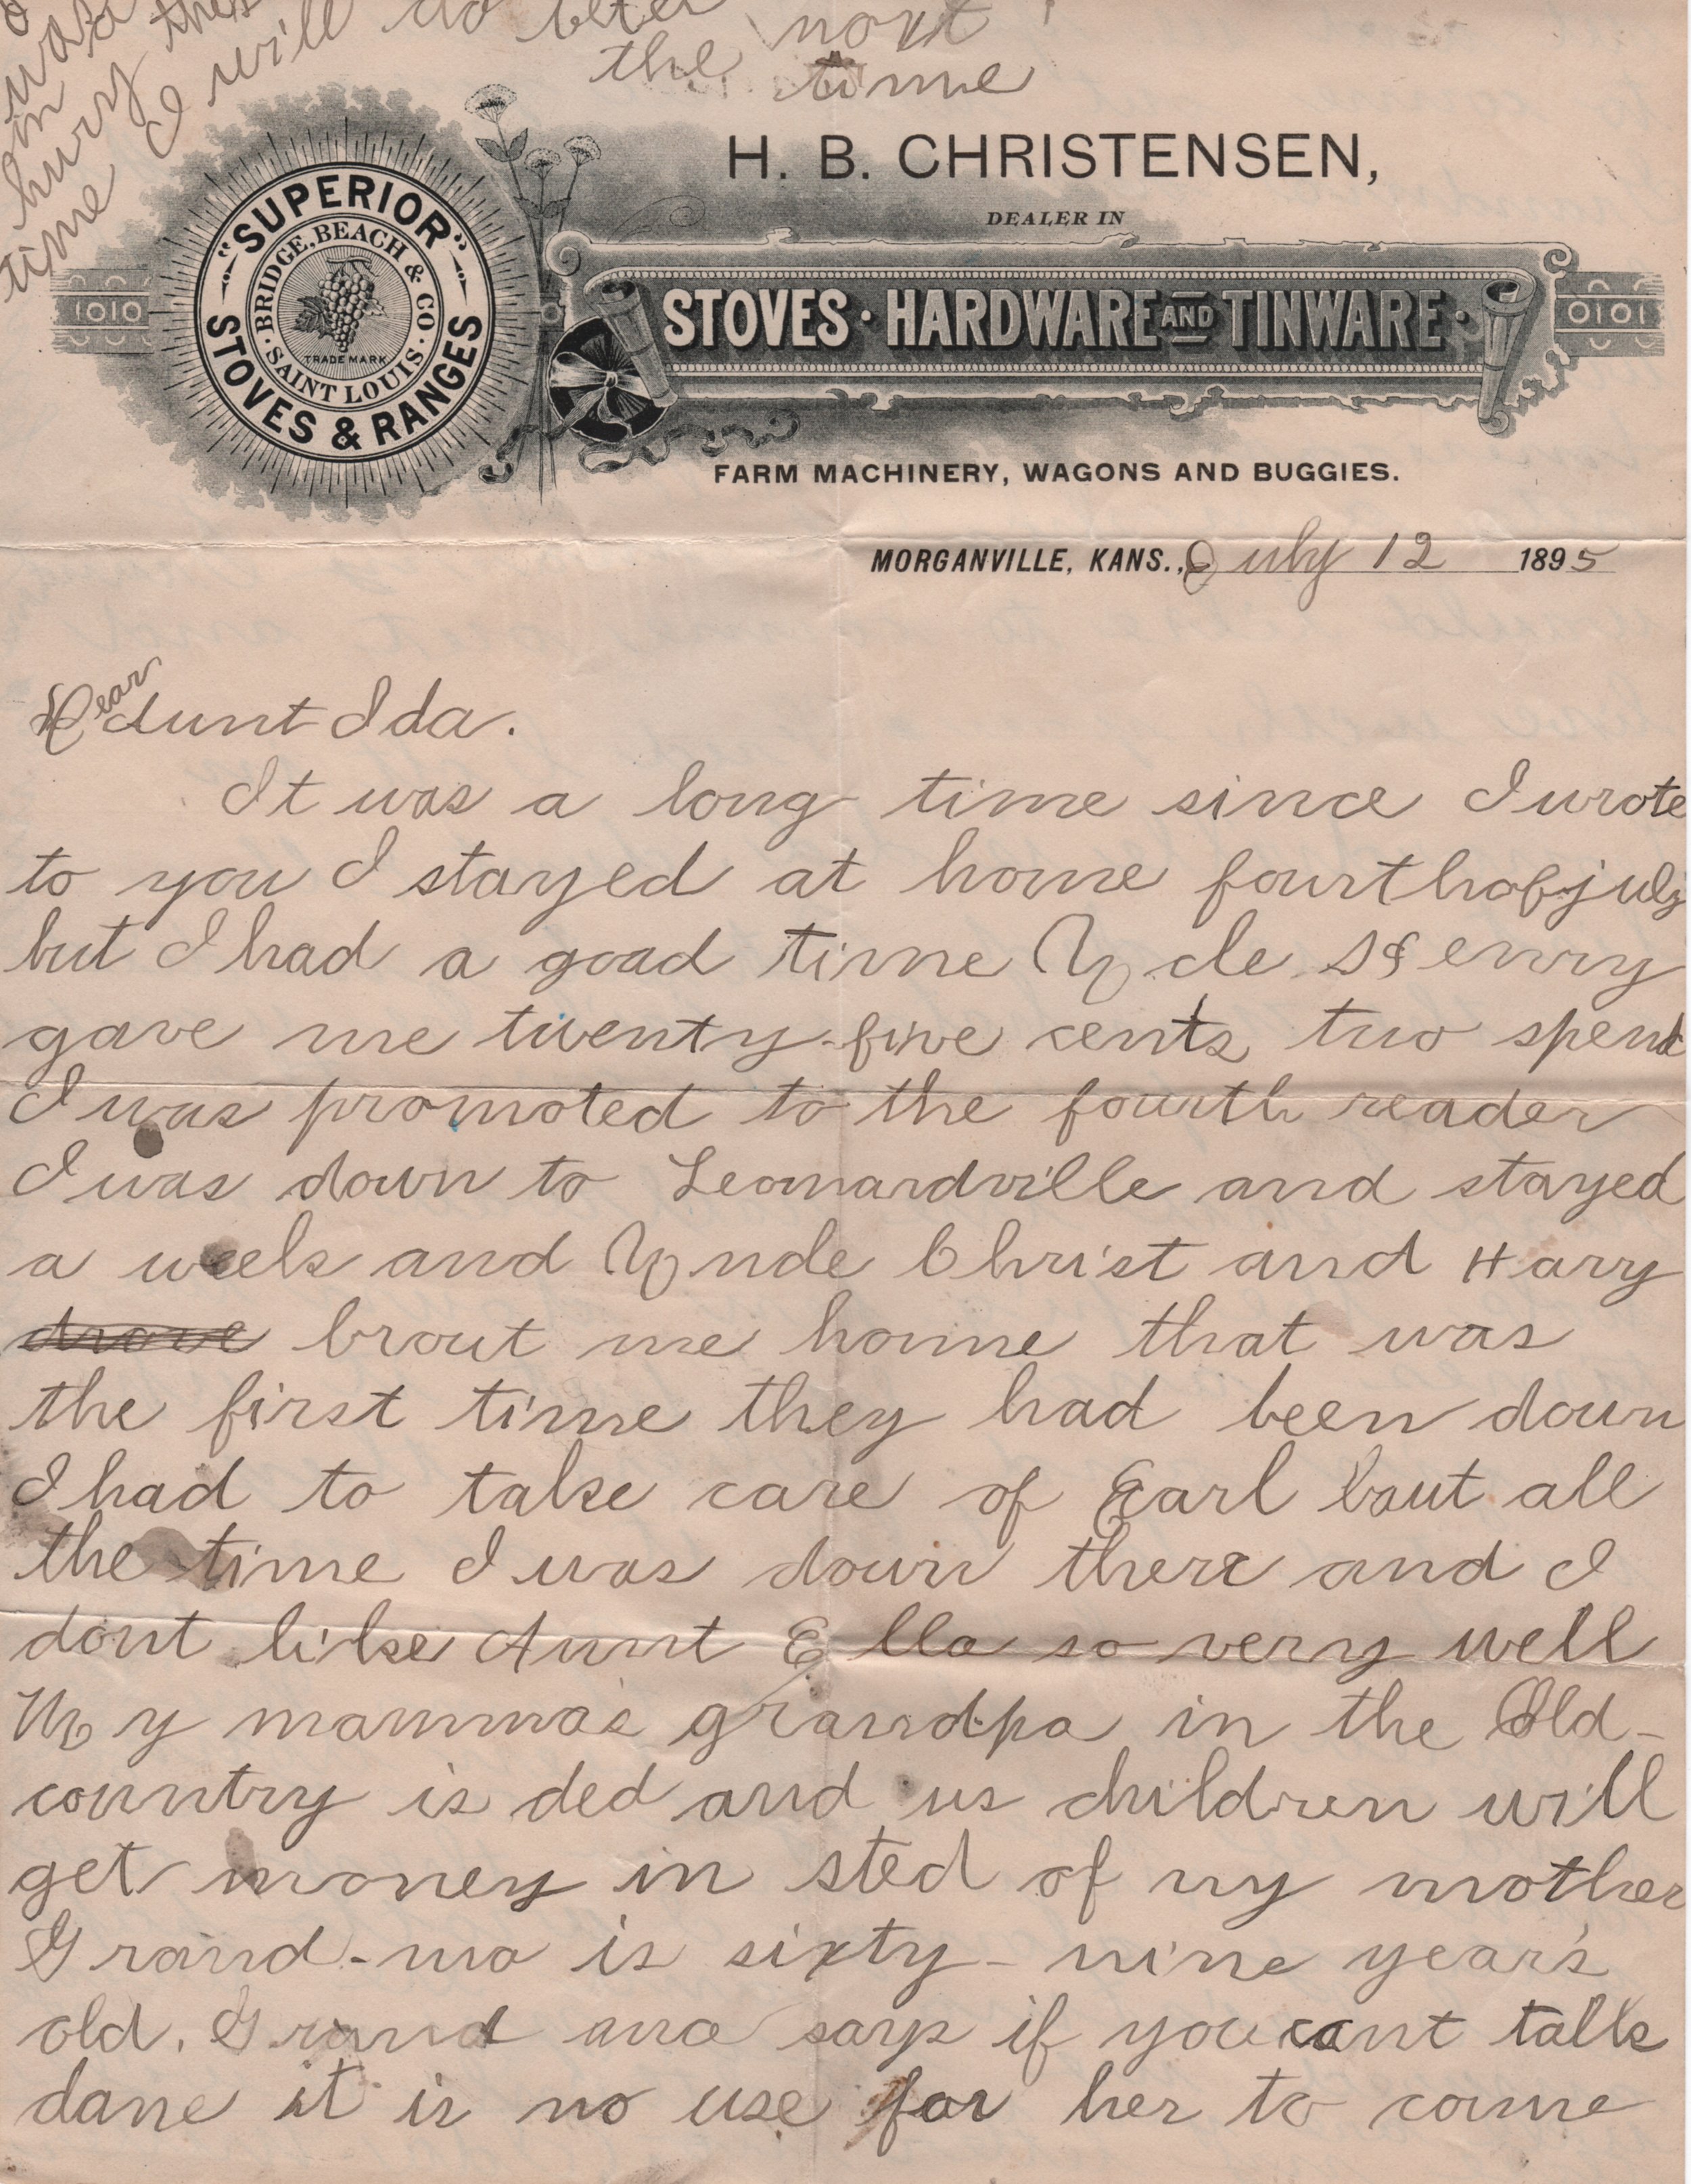 was
in
hury this
time I will do better
the next
time
H. B. CHRISTENSEN,
DEALER IN
"SUPERIOR"
STOVES & RANGES
BRIDGE, BEACH & CO.
SAINT LOUIS
TRADE MARK
1010
STOVES · HARDWARE AND TINWARE ·
0101
FARM MACHINERY, WAGONS AND BUGGIES.
MORGANVILLE, KANS., July 12 1895
Dear Aunt Ida.
It was a long time since I wrote
to you I stayed at home fourth of july
but I had a goad time Uncle Henry
gave me twenty-five cents two spend
I was promoted to the fourth reader
I was down to Leonardville and stayed
a week and Uncle Christ and Harry
drove brout me home that was
the first time they had been down
I had to take care of Earl bout all
the time I was down there and I
dont like Aunt Ella so very well
My mamma's grandpa in the Old-
country is ded and us children will
get money in sted of my mother
Grand-ma is sixty-nine year's
old. Grand ma says if you cant talk
dane it is no use for her to come